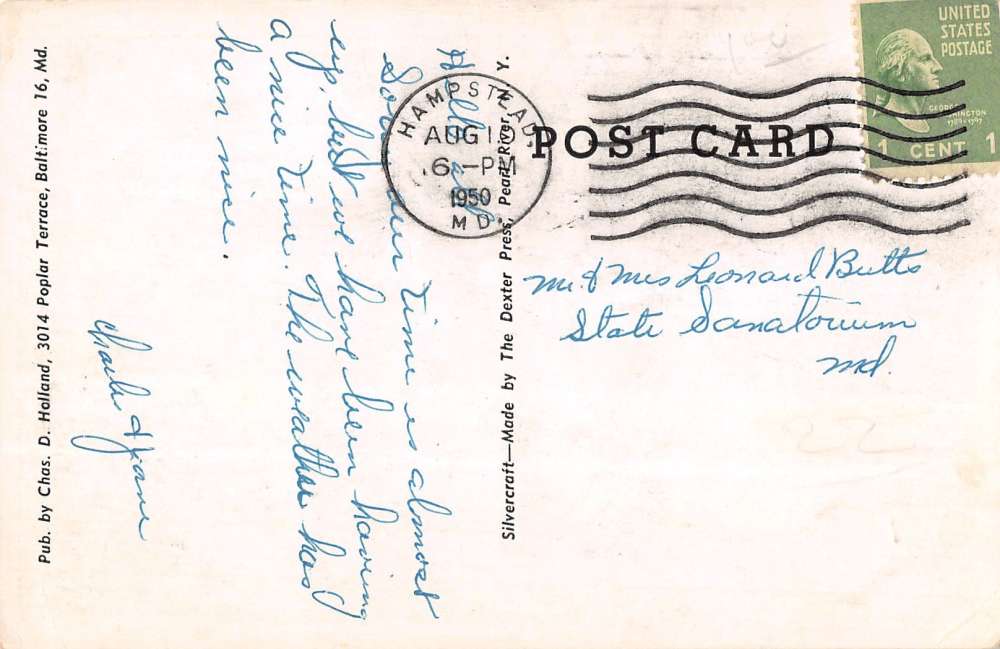 Hello all
Sorry our time is almost
up, but we have been having
a nice time. The weather has
been nice.
Charlie & Jane
Pub. by Chas. D. Holland, 3014 Poplar Terrace, Baltimore 16, Md.
Silvercraft—Made by The Dexter Press, Pearl River, N. Y.
HAMPSTEAD
AUG
6-PM
1950
MD.
POST CARD
UNITED
STATES
POSTAGE
GEORGE
WASHINGTON
1789-1797
1 CENT 1
Mr. & Mrs Leonard Butts
State Sanatorium
Md.